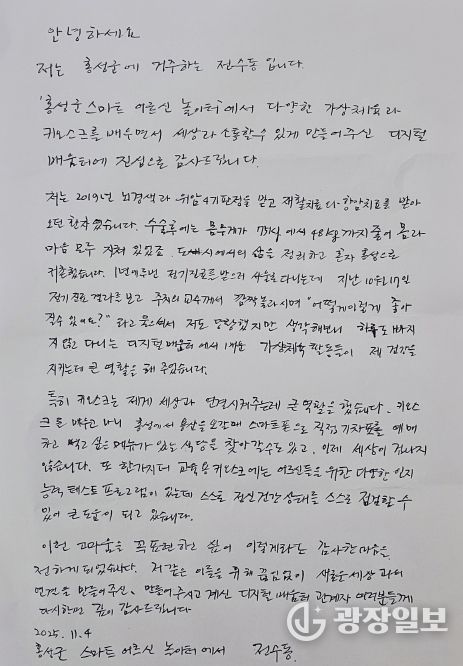 안녕하세요
저는 홍성군에 거주하는 전수동입니다.
'홍성군 스마트 어르신 놀이터'에서 다양한 가상체육과
키오스크를 배우면서 세상과 소통할수 있게 만들어주신 디지털
배움터에 진심으로 감사드립니다.
저는 2019년 뇌경색과 위암4기판정을 받고 재활치료와 항암치료를 받아
오던 환자였습니다. 수술후에는 몸무게가 78kg에서 48kg까지 줄어 몸과
마음 모두 지쳐 있었죠. 도시에서의 삶을 정리하고 혼자 홍성으로
귀촌했습니다. 1년에 두번 정기진료를 받으러 서울로 다니는데 지난 10월17일
정기진료 결과를 보고 주치의 교수께서 깜짝 놀라시며 "어떻게 이렇게 좋아
질수 있어요?" 라고 물으셔서 저도 당황했지만 생각해보니 하루도 빠지
지 않고 다니는 디지털 배움터에서 배운 가상체육 활동들이 제 건강을
지키는데 큰 역할을 해 주었습니다.
특히 키오스크는 제게 세상과 연결시켜주는데 큰 역할을 했습니다. 키오스
크를 배우고 나니 홍성에서 용산을 오갈때 스마트폰으로 직접 기차표를 예매
하고 먹고 싶은 메뉴가 있는 식당을 찾아갈수도 있고, 이제 세상이 겁나지
않습니다. 또 한가지더 교육용 키오스크에는 어르신들을 위한 다양한 인지
능력 테스트 프로그램이 있는데 스스로 정신건강 상태를 스스로 점검할 수
있어 큰 도움이 되고 있습니다.
이런 고마움을 꼭 표현하고 싶어 이렇게라도 감사한 마음을
전하게 되었습니다. 저 같은 이들을 위해 끊임없이 새로운 세상과의
연결을 만들어주신, 만들어주시고 계신 디지털 배움터 관계자 여러분들께
다시한번 깊이 감사드립니다
2025. 11. 4
홍성군 스마트 어르신 놀이터에서 전수동.
광장일보